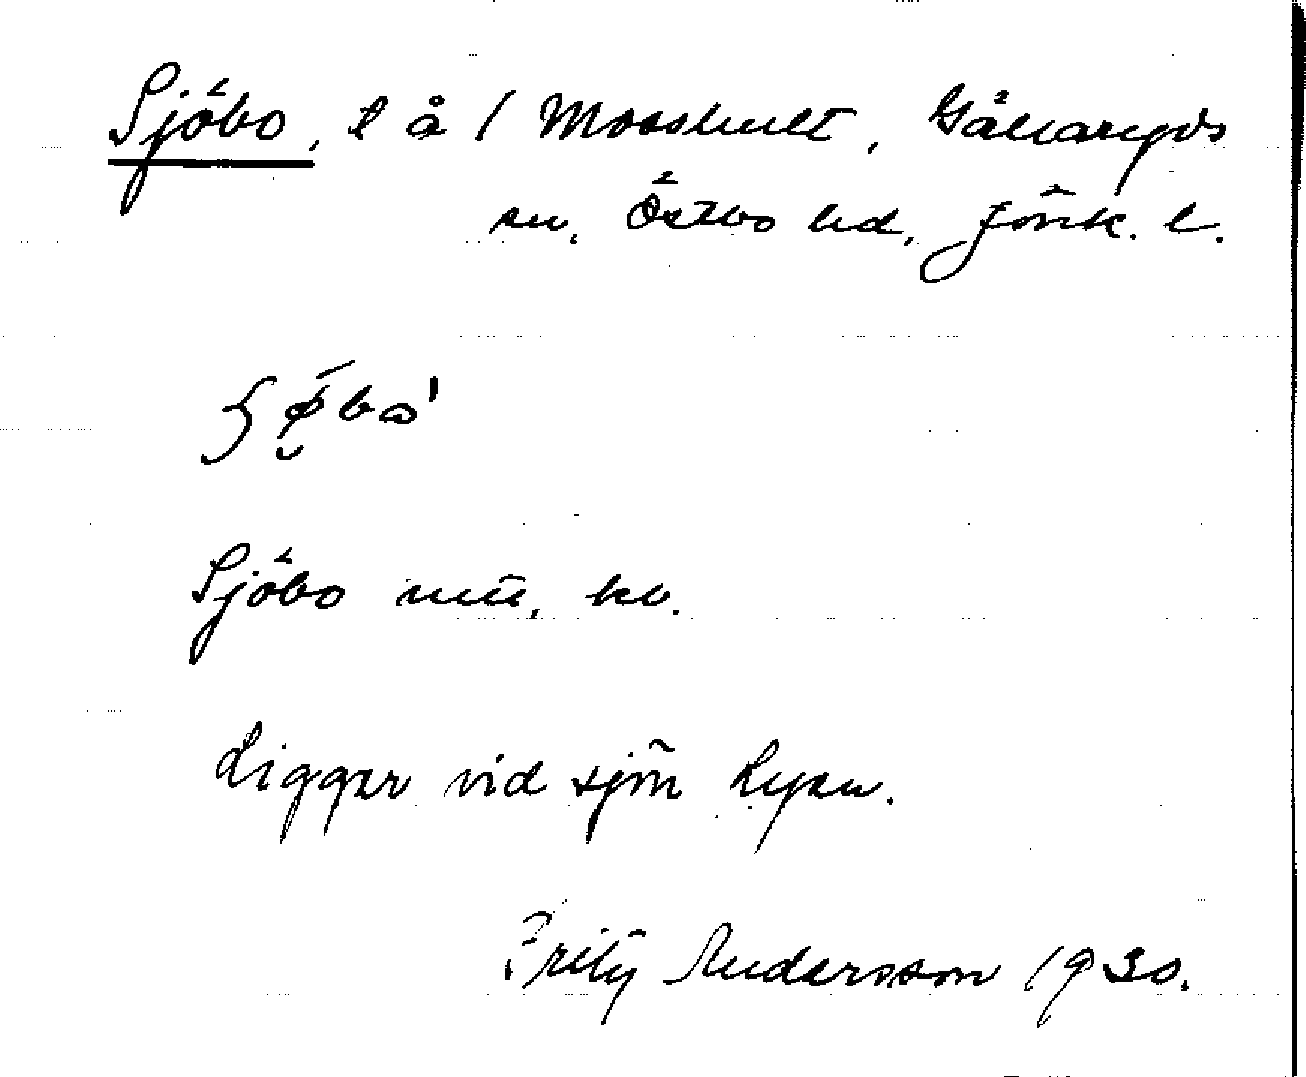 Sjöbo, l å / Mosshult, Gällaryds
sn, Östbo hd, Jönk. l.
Sjöbo mtl, kv.
Ligger vid sjön Lyen.
Fritz Andersson 1930.